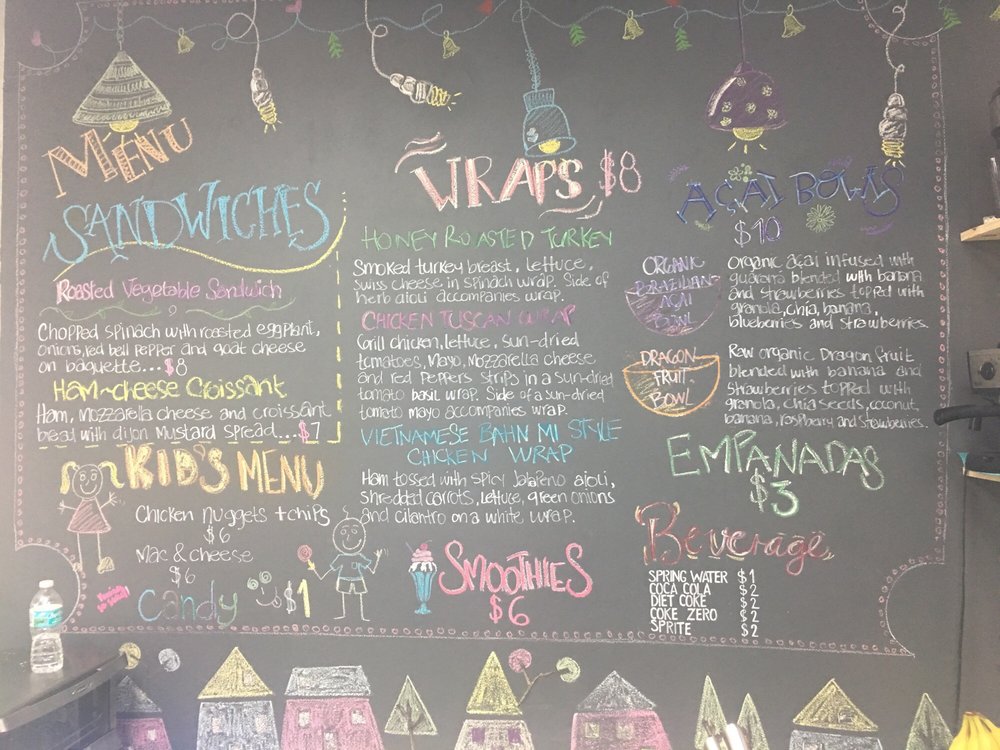 MENU
SANDWICHES
Roasted Vegetable Sandwich
Chopped spinach with roasted eggplant,
onions, red bell pepper and goat cheese
on baguette...$8
Ham-cheese Croissant
Ham, Mozzarella cheese and croissant
bread with dijon Mustard spread....$7
KID'S MENU
Chicken nuggets +chips
$6
Mac & cheese
$6
Candy $1
WRAPS $8
HONEY ROASTED TURKEY
Smoked turkey breast, lettuce,
swiss cheese in spinach wrap. Side of
herb aioli accompanies wrap.
CHICKEN TUSCAN WRAP
Grill chicken, lettuce, sun-dried
tomatoes, Mayo, Mozzarella cheese
and red Peppers strips in a sun-dried
tomato basil wrap. Side of a sun-dried
tomato mayo accompanies wrap.
VIETNAMESE BAHN MI STYLE
CHICKEN WRAP
Ham tossed with spicy Jalapeno aioli,
shredded carrots, lettuce, green onions
and cilantro on a white wrap.
SMOOTHIES
$6
AÇAI BOWLS
$10
ORGANIC
BRAZILIAN
AÇAI
BOWL
Organic açai infused with
guarana blended with banana
and strawberries topped with
granola, chia, banana,
blueberries and strawberries.
DRAGON
FRUIT
BOWL
Raw organic Dragon fruit
blended with banana and
strawberries topped with
granola, chia seeds, coconut,
banana, raspberry and strawberries.
EMPANADAS
$3
Beverage
SPRING WATER $1
COCA COLA $2
DIET COKE $2
COKE ZERO $2
SPRITE $2